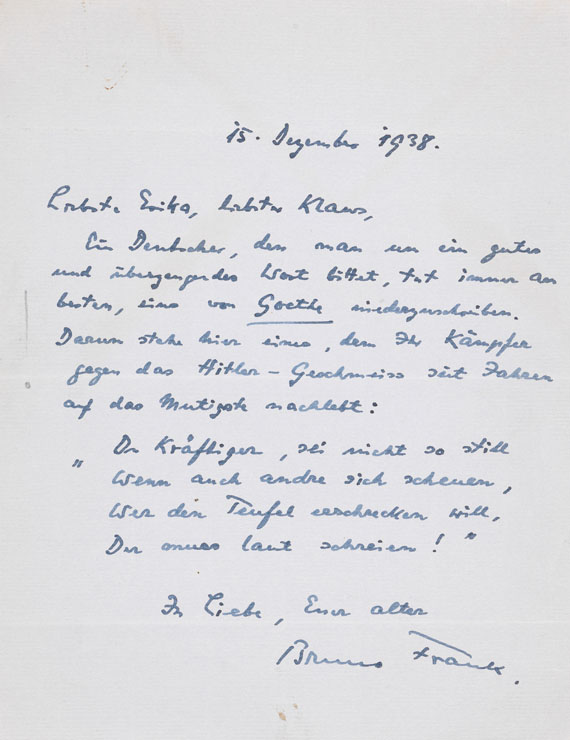 15. Dezember 1938.
Liebste Erika, liebster Klaus,
Ein Deutscher, den man um ein gutes
und überzeugendes Wort bittet, tut immer am
besten, eins von Goethe niederzuschreiben.
Darum stehe hier eines, dem Ihr Kämpfer
gegen das Hitler-Geschmeiss seit Jahren
auf das Mutigste nachlebt:
„ Du Kräftiger, sei nicht so still
Wenn auch andre sich scheuen,
Wer den Teufel erschrecken will,
Der muss laut schreien! “
In Liebe, Euer alter
Bruno Frank.